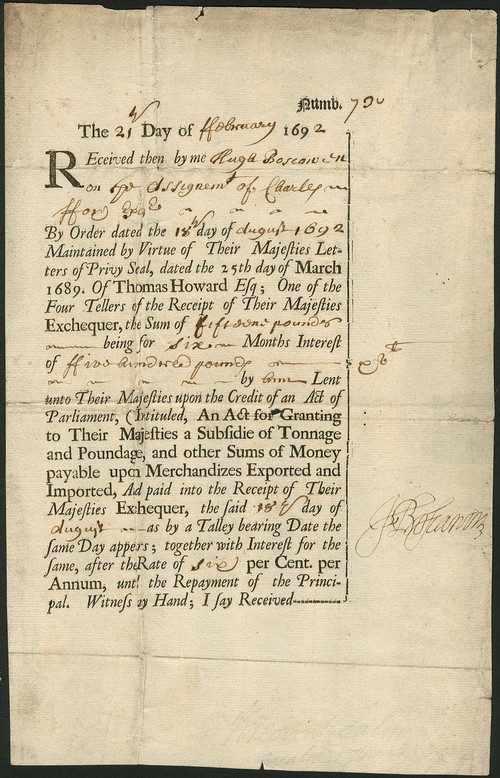 Numb. 730
The 21th Day of ffebruary 1692
REceived then by me Hugh Boscawen
on the Assignemt of Charles
ffox Esqr
By Order dated the 18th day of August 1692
Maintained by Virtue of Their Majeſties Let-
ters of Privy Seal, dated the 25th day of March
1689. Of Thomas Howard Eſq; One of the
Four Tellers of the Receipt of Their Majeſties
Exchequer, the Sum of fifteene pounds
being for six Months Intereſt
of ffive hundred pounds
by Lent
unto Their Majeſties upon the Credit of an Act of
Parliament, (Intituled, An Act for Granting
to Their Majeſties a Subſidie of Tonnage
and Poundage, and other Sums of Money
payable upon Merchandizes Exported and
Imported, And paid into the Receipt of Their
Majeſties Exchequer, the ſaid 18th day of
August as by a Talley bearing Date the
ſame Day appers; together with Intereſt for the
ſame, after the Rate of six per Cent. per
Annum, until the Repayment of the Princi-
pal. Witneſs my Hand; I ſay Received
H Boscawen